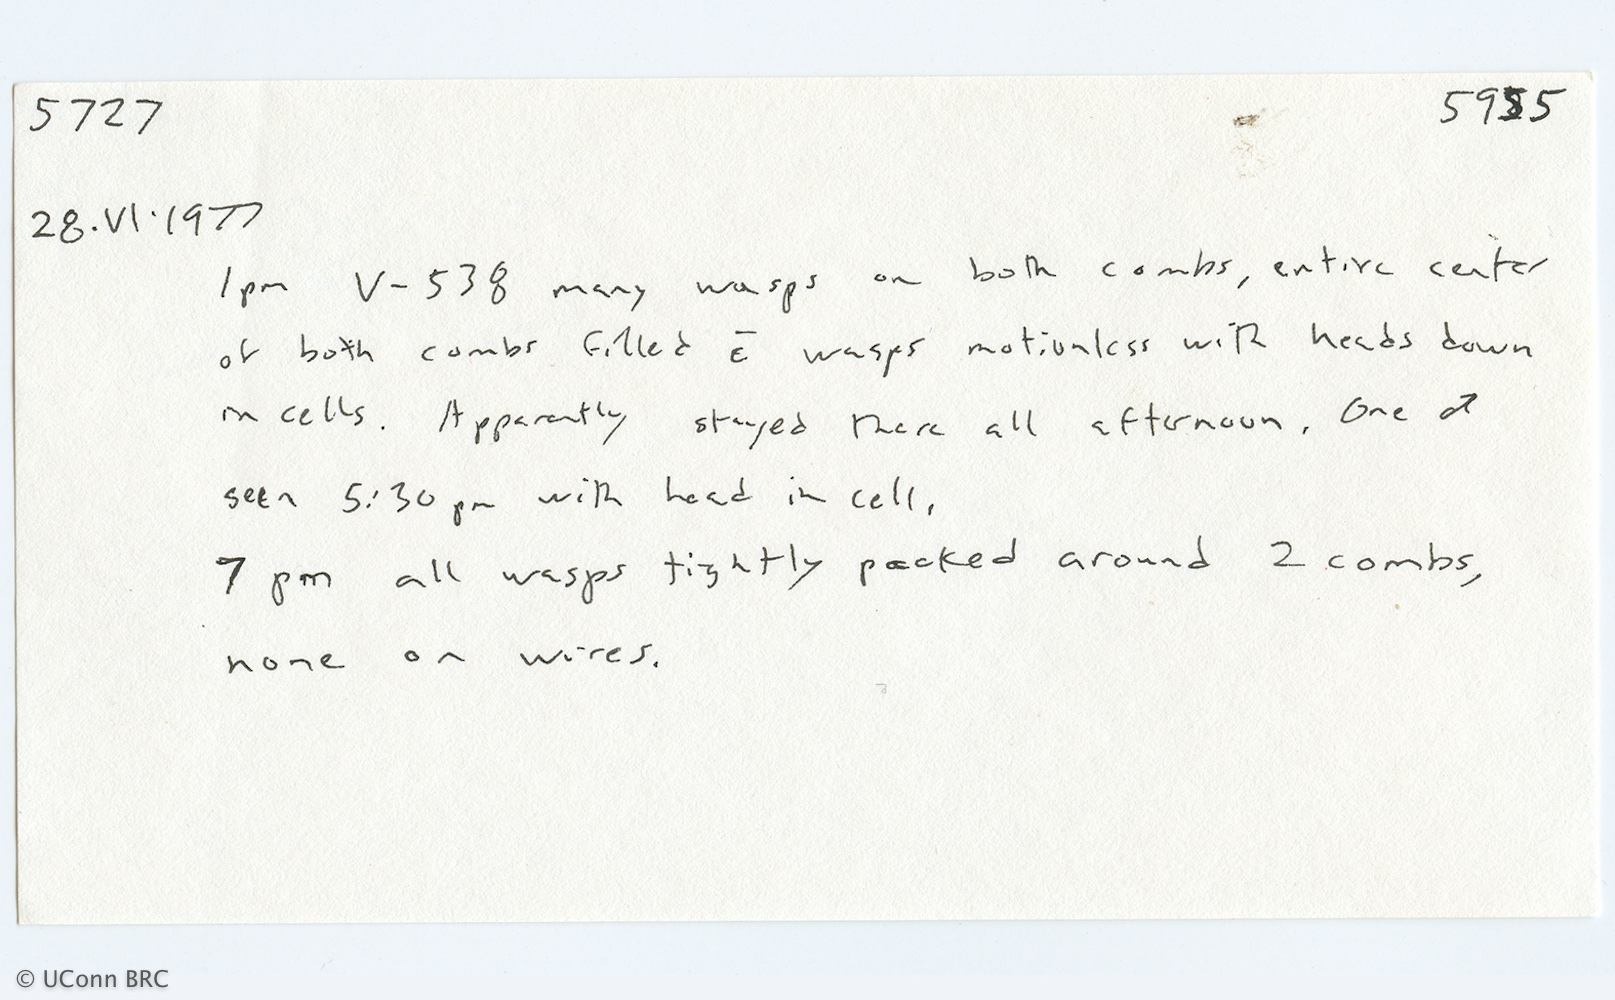 5727 5955
28.VI.1977
1pm V-538 many wasps on both combs, entire center
of both combs filled c̄ wasps motionless with heads down
in cells. Apparently stayed there all afternoon. One ♂
seen 5:30pm with head in cell.
7 pm all wasps tightly packed around 2 combs,
none on wires.
© UConn BRC